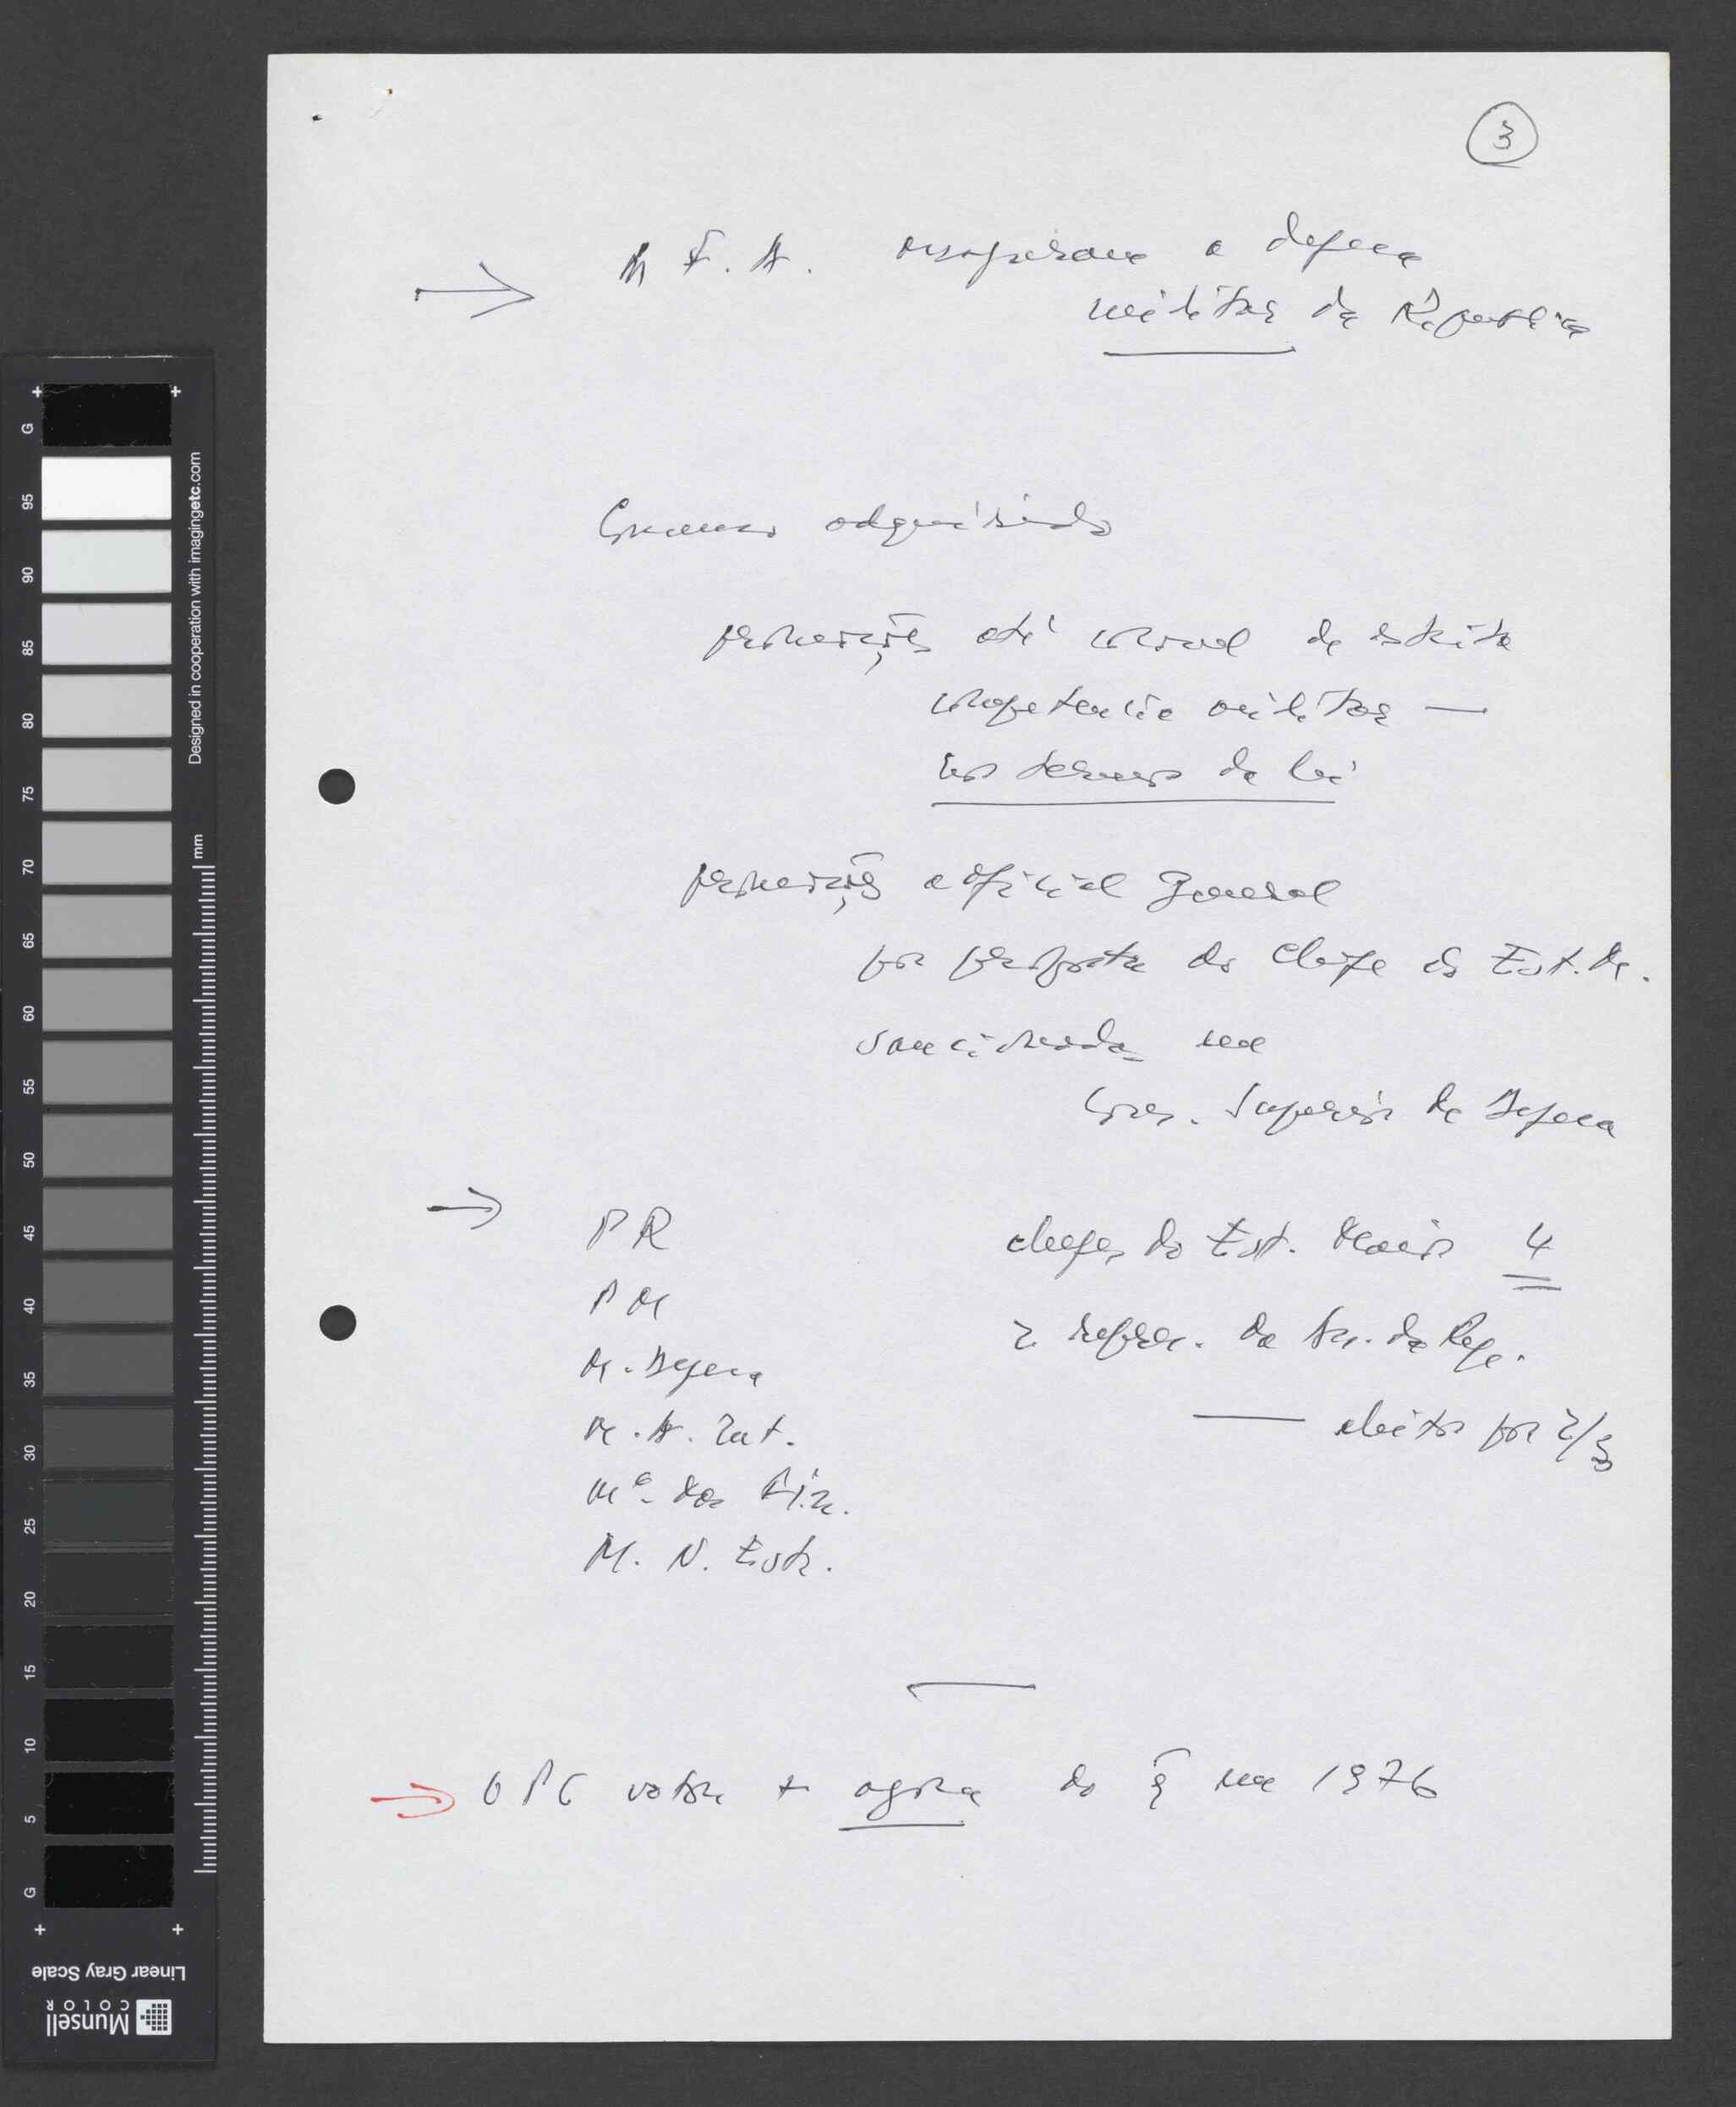 3
F. A. asseguram a defesa
militar da República
Consenso adquirido
promoções até coronel da estrita
competência militar —
nos termos da lei
promoções a oficial General
por proposta do Chefe do Est. M.
sancionada no
Cons. Superior de Defesa
PR
PM
M. Defesa
M. A. Int.
Mº das Fin.
M. N. Estr.
chefes do Est. Maior 4
2 repres. da As. da Rep.
— eleitos por 2/3
O PC votou + agora do q̃ em 1976
G
95
90
85
80
75
70
65
60
55
50
45
40
35
30
25
20
15
10
5
G
Designed in cooperation with imagingetc.com
mm
Linear Gray Scale
Munsell
COLOR